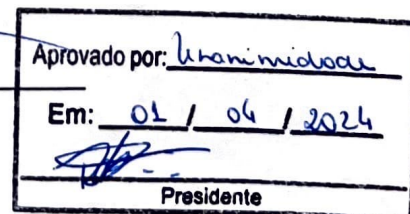 Aprovado por: Unanimidade
Em: 01 / 04 / 2024
Presidente